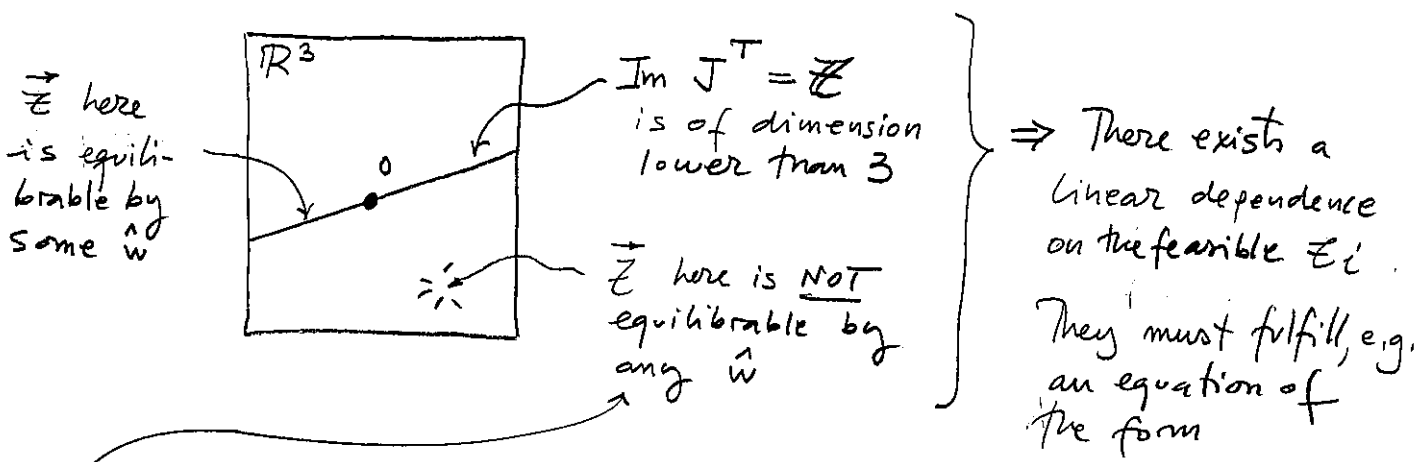 ℝ³
0
z⃗ here
is equili-
brable by
some ŵ
Im Jᵀ = Z
is of dimension
lower than 3
z⃗ here is NOT
equilibrable by
any ŵ
⇒ There exists a
linear dependence
on the feasible zi.
They must fulfill, e.g.
an equation of
the form